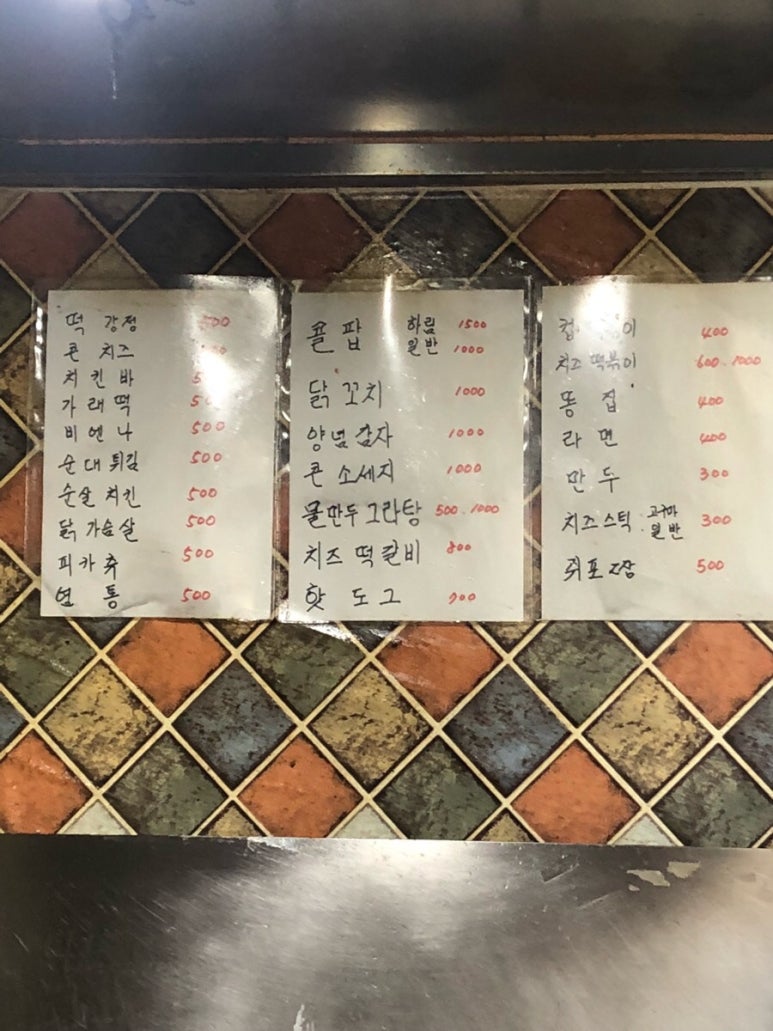 떡 강정 500
콘 치즈
치킨바
가래떡
비엔나 500
순대 튀김 500
순살 치킨 500
닭 가슴살 500
피카츄 500
염통 500
콜팝 하림 1500
일반 1000
닭 꼬치 1000
양념 감자 1000
콘 소세지 1000
물만두 그라탕 500 . 1000
치즈 떡갈비 800
핫 도그 700
400
치즈 떡볶이 600 . 1000
똥 집 400
라 면 400
만 두 300
치즈스틱 고구마 일반 300
쥐포 500